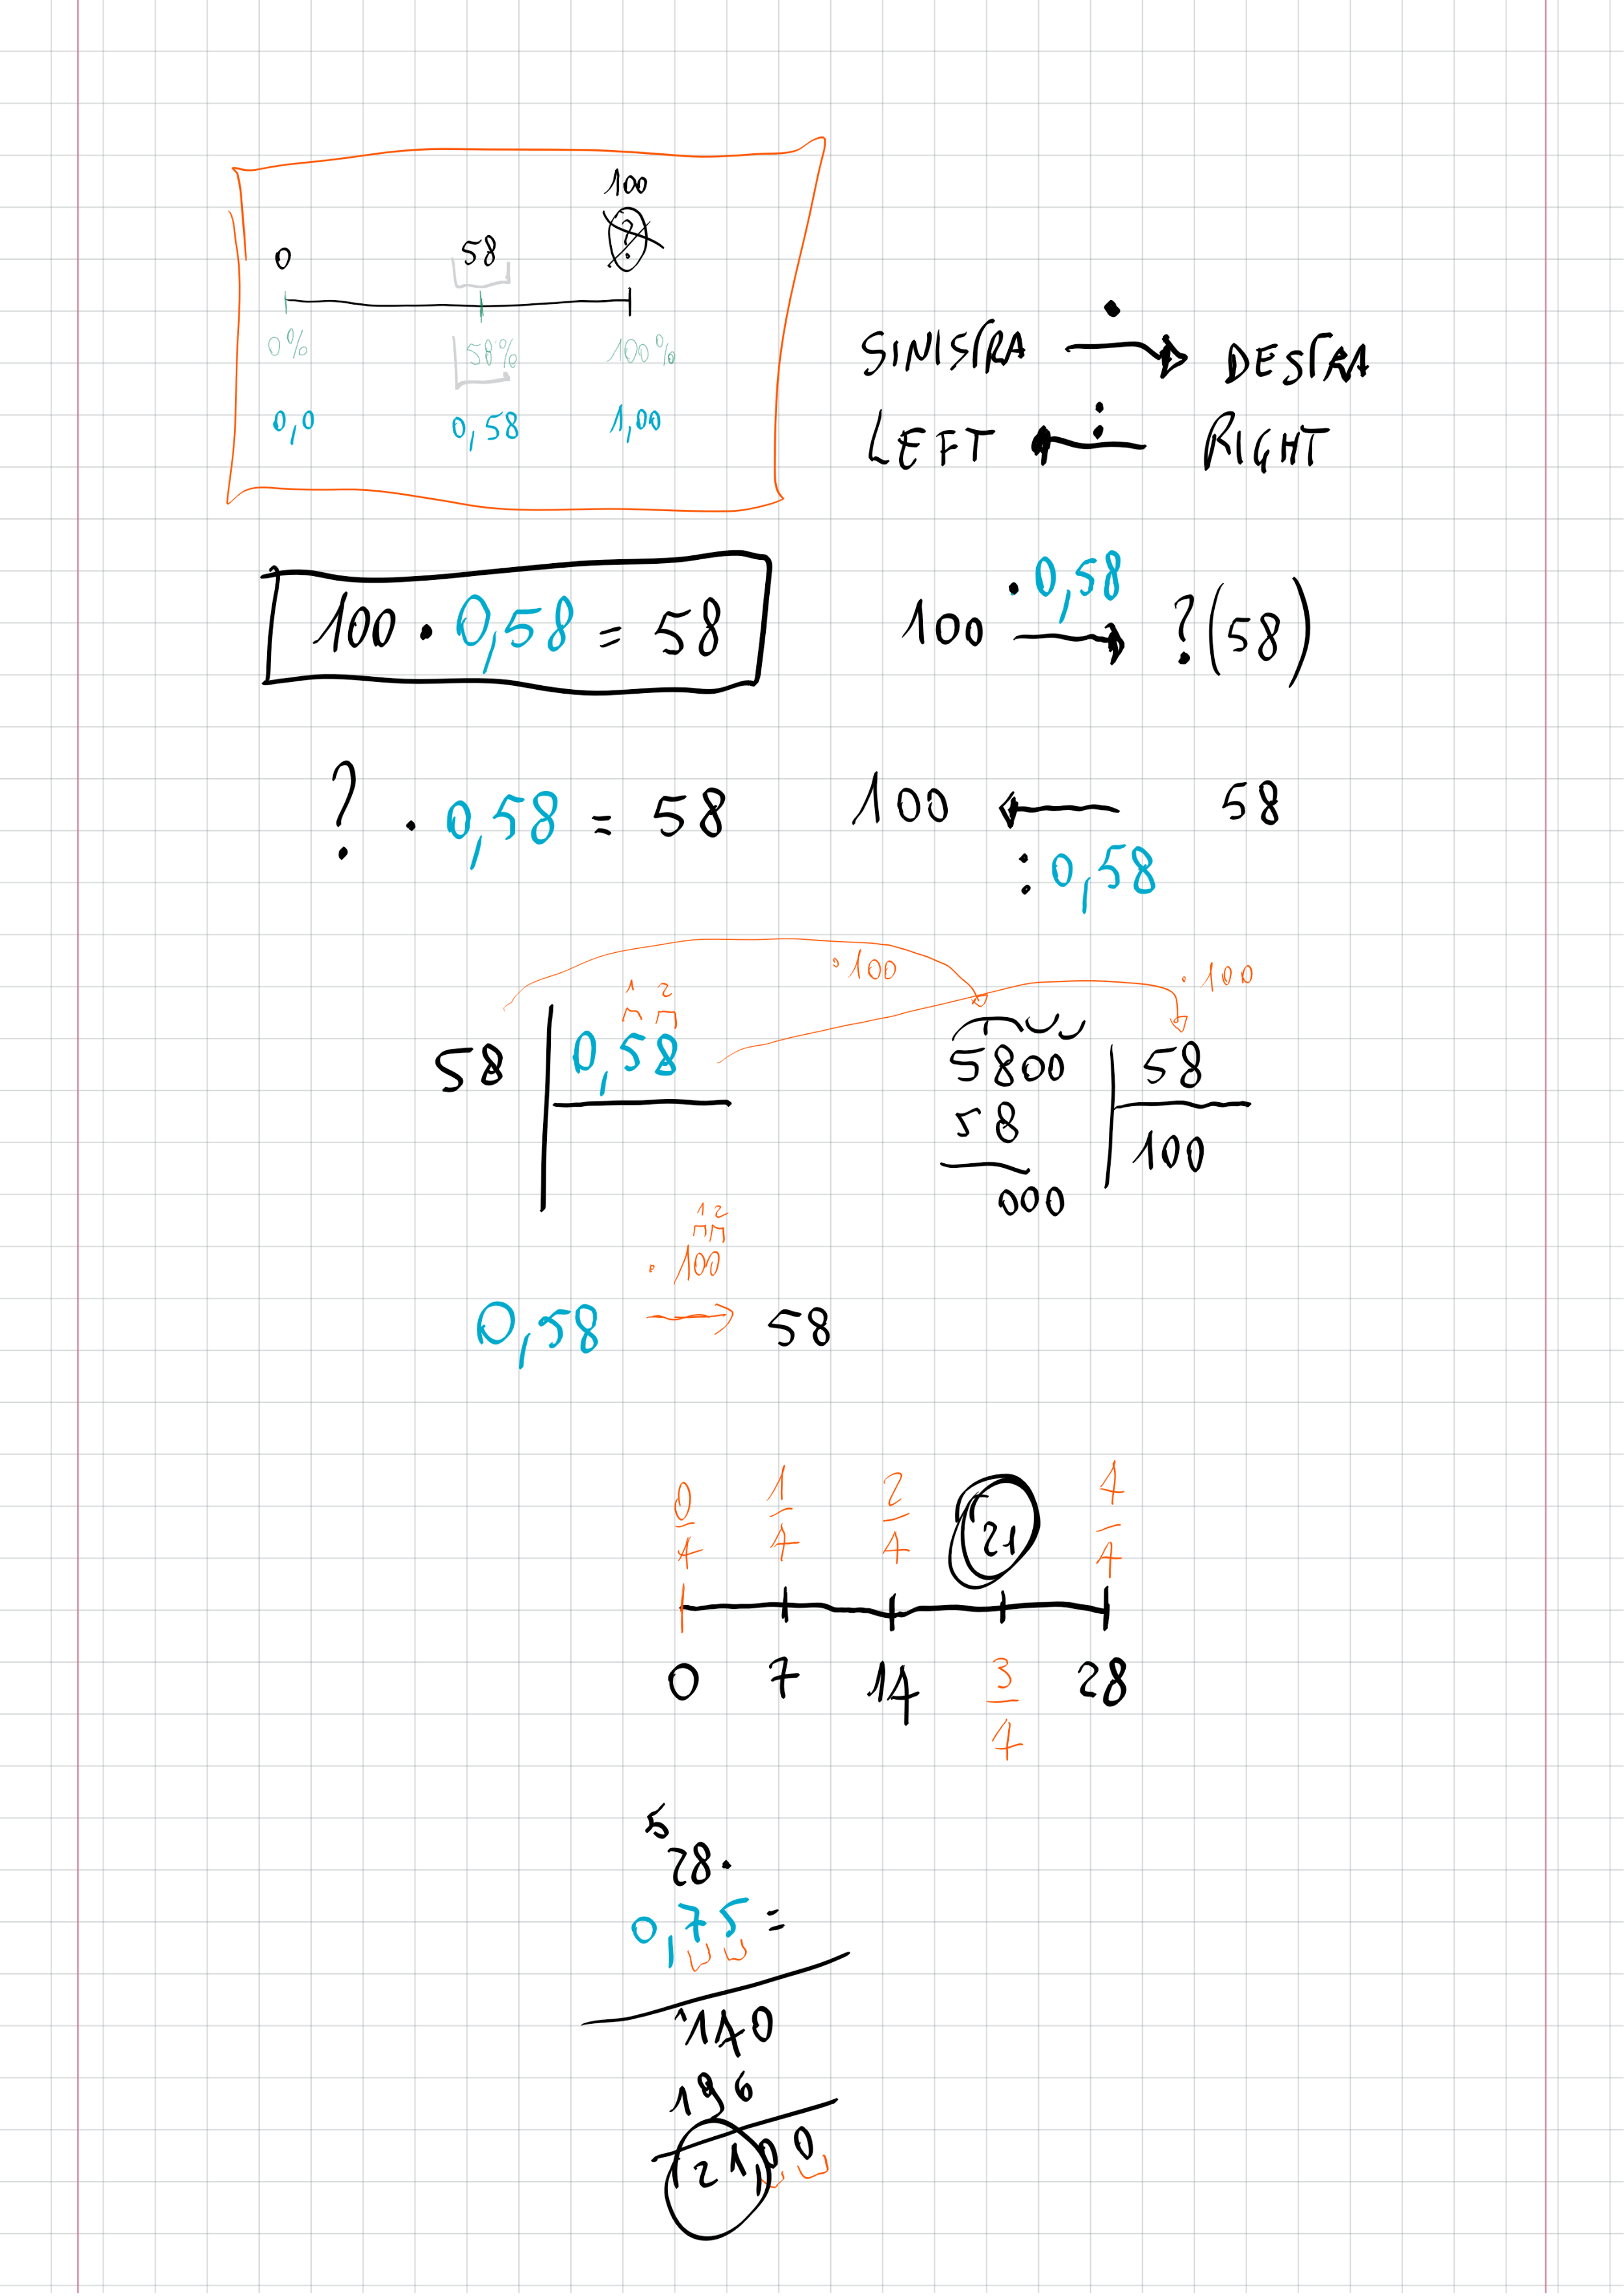 100
0 58 ?
0% 58% 100%
0,0 0,58 1,00
SINISTRA · → DESTRA
LEFT ← : RIGHT
100 · 0,58 = 58
100 · 0,58 → ? (58)
? · 0,58 = 58
100 ← 58
: 0,58
· 100 · 100
1 2
58 0,58
5800 58
58 100
000
1 2
· 100
0,58 → 58
0/4 1/4 2/4 21 4/4
0 7 14 3/4 28
5
28 ·
0,75 =
140
196
21,00